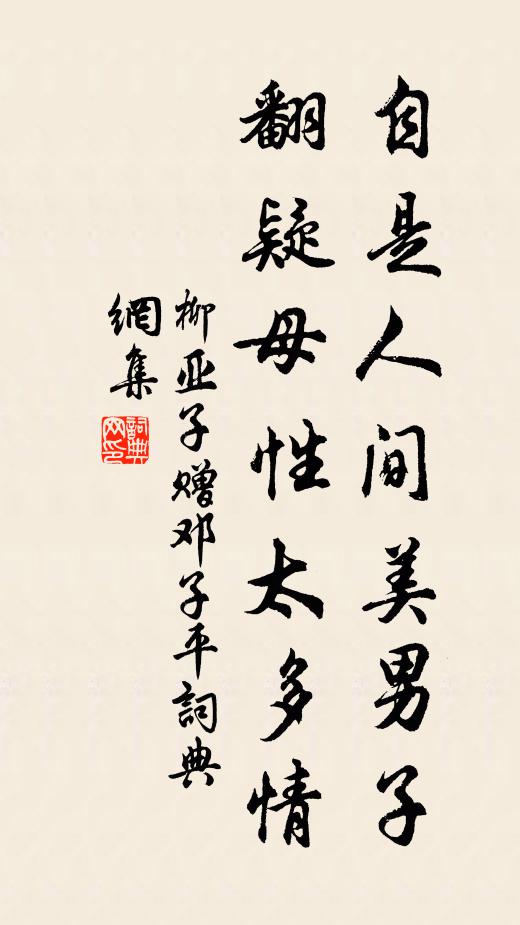 自是人间美男子
翻疑母性太多情
柳亚子赠邓子平詞典
網集
詞典
网印